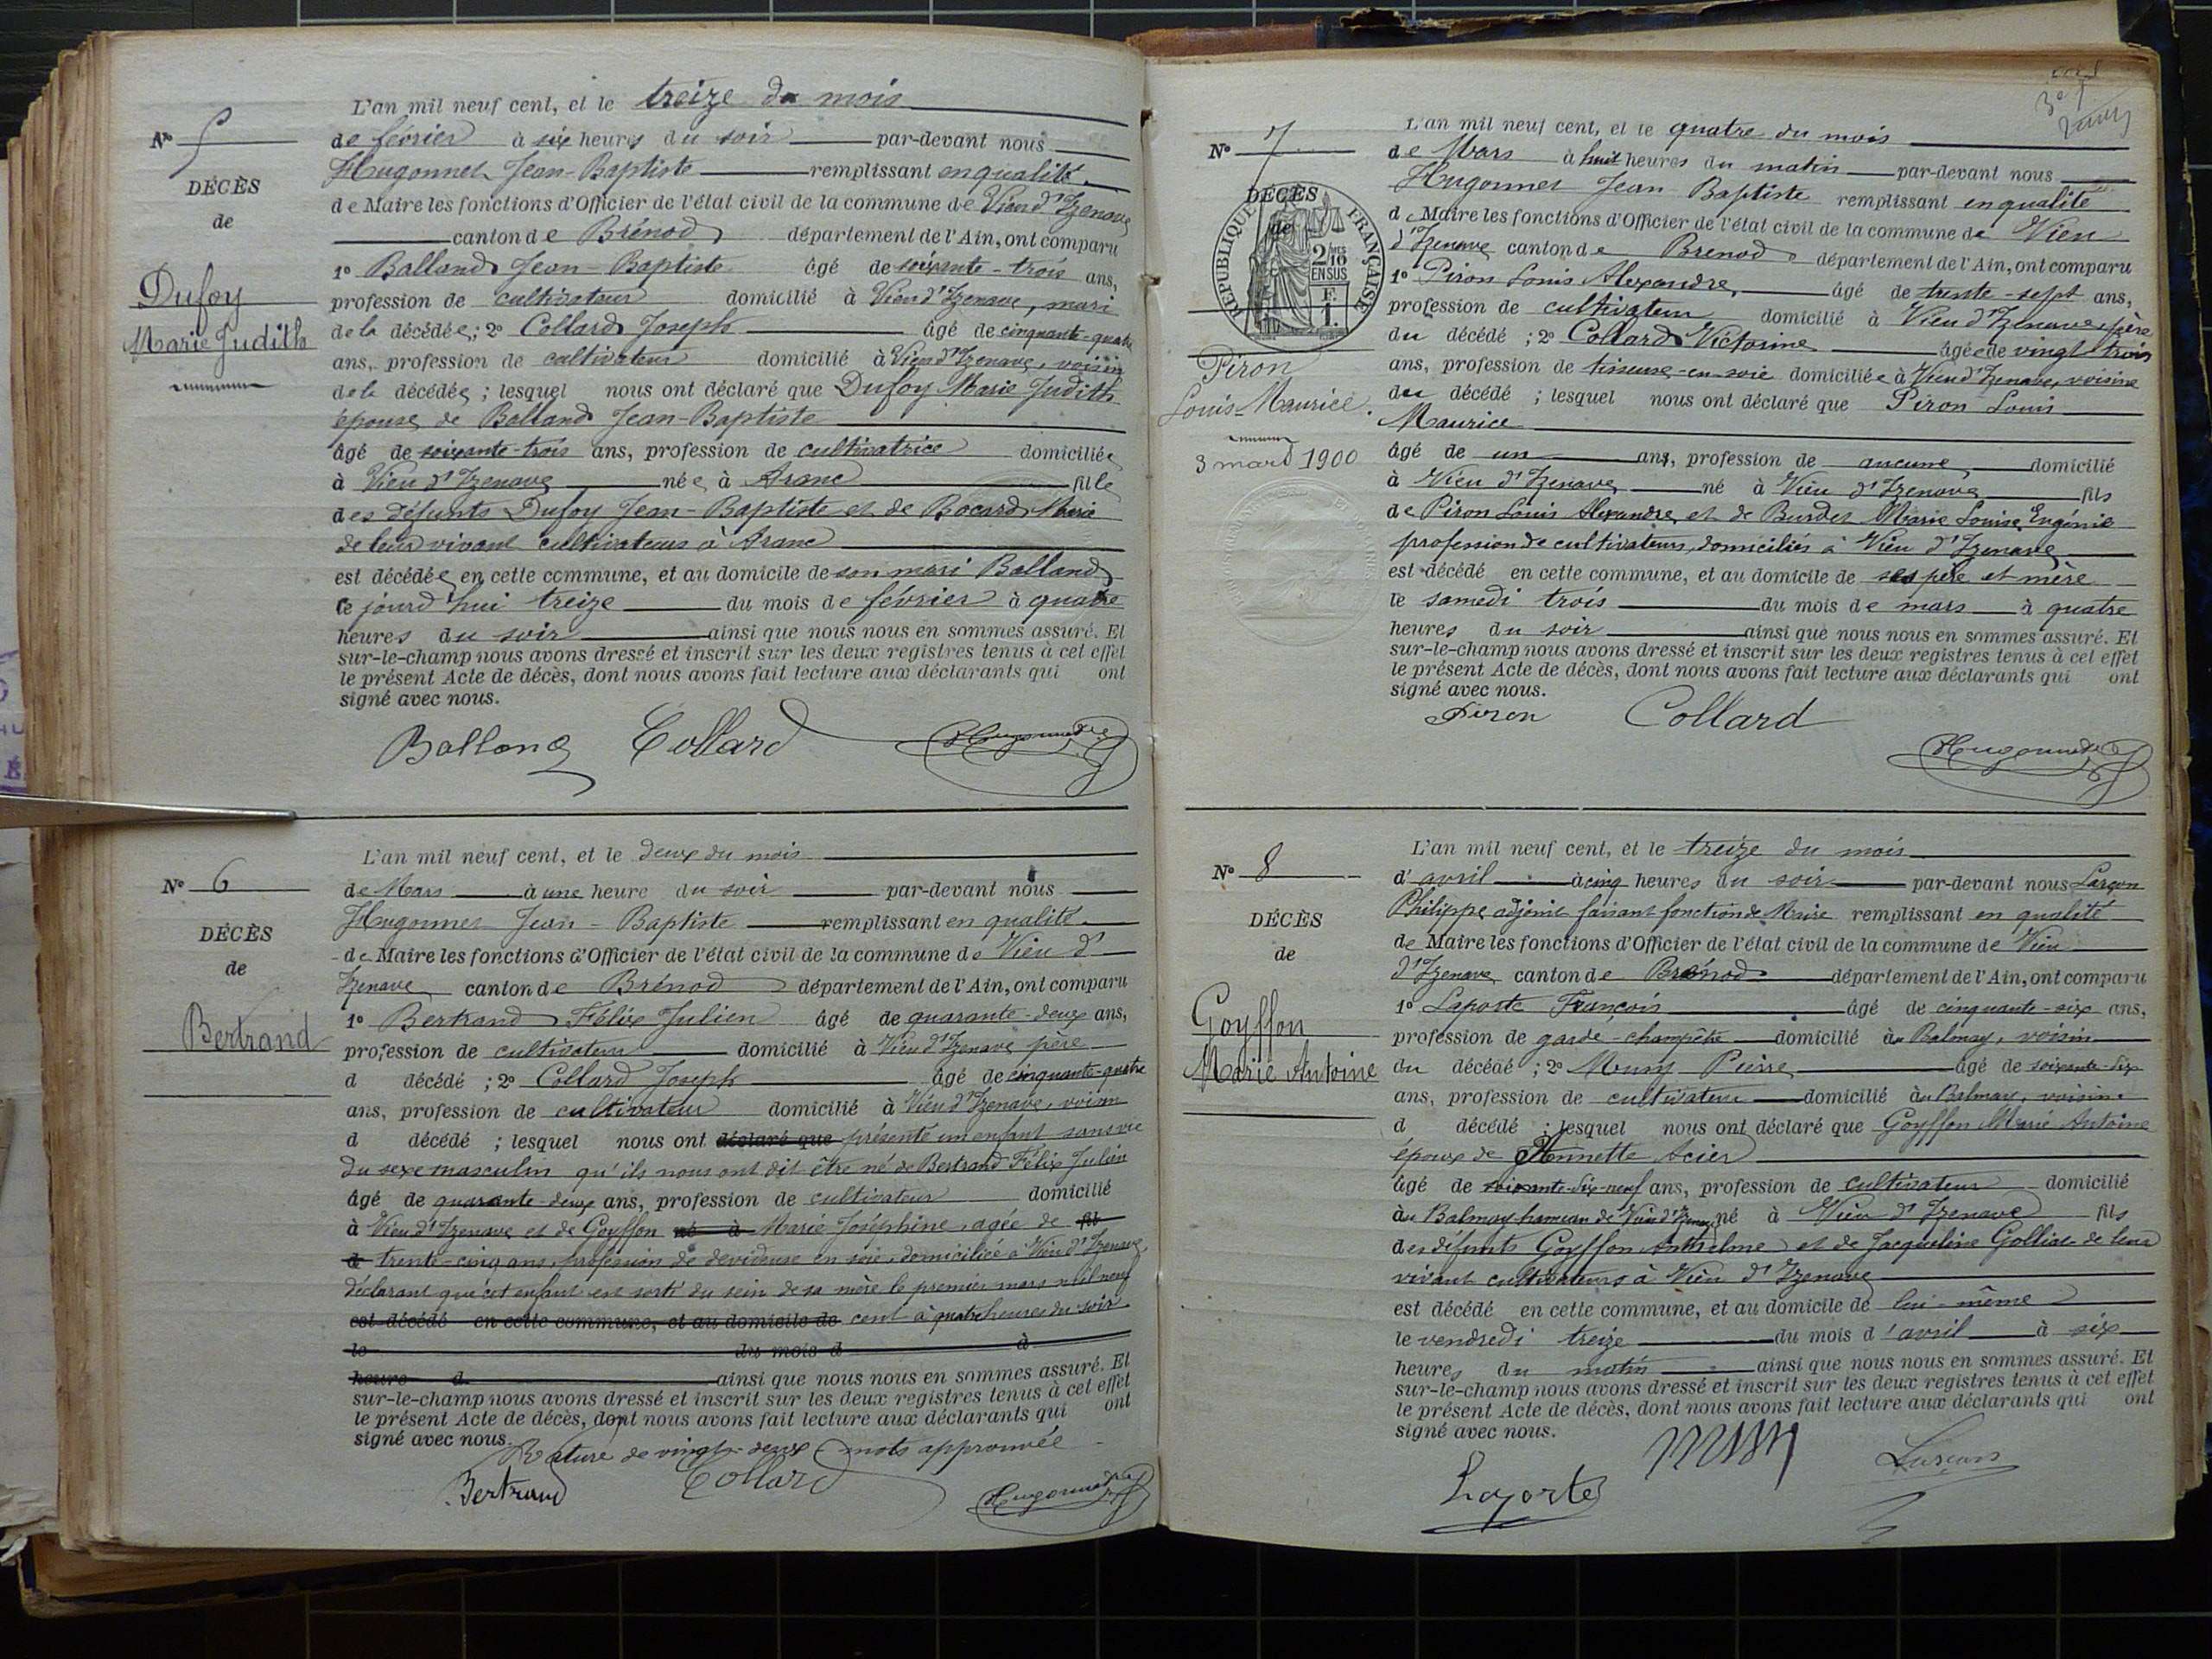 N° 5
DÉCÈS
de
Dufoy
Marie Judith
L'an mil neuf cent, et le treize du mois
de février à six heures du soir par-devant nous
Hugonnet Jean-Baptiste remplissant en qualité
de Maire les fonctions d'Officier de l'état civil de la commune de Vieu d'Izenave
canton de Brénod département de l'Ain, ont comparu
1° Balland Jean-Baptiste âgé de soixante-trois ans,
profession de cultivateur domicilié à Vieu d'Izenave, mari
de la décédée ; 2° Collard Joseph âgé de cinquante-quatre
ans, profession de cultivateur domicilié à Vieu d'Izenave, voisin
de la décédée ; lesquel nous ont déclaré que Dufoy Marie Judith
épouse de Balland Jean-Baptiste
âgé de soixante-trois ans, profession de cultivatrice domiciliée
à Vieu d'Izenave née à Aranc fille
des défunts Dufoy Jean-Baptiste et de Bocard Marie
de leur vivant cultivateurs à Aranc
est décédée en cette commune, et au domicile de son mari Balland
ce jourd'hui treize du mois de février à quatre
heures du soir ainsi que nous nous en sommes assuré. Et
sur-le-champ nous avons dressé et inscrit sur les deux registres tenus à cet effet
le présent Acte de décès, dont nous avons fait lecture aux déclarants qui ont
signé avec nous.
Balland Collard Hugonnet
N° 6
DÉCÈS
de
Bertrand
L'an mil neuf cent, et le deux du mois
de Mars à une heure du soir par-devant nous
Hugonnet Jean-Baptiste remplissant en qualité
de Maire les fonctions d'Officier de l'état civil de la commune de Vieu d'
Izenave canton de Brénod département de l'Ain, ont comparu
1° Bertrand Félix Julien âgé de quarante-deux ans,
profession de cultivateur domicilié à Vieu d'Izenave père
d décédé ; 2° Collard Joseph âgé de cinquante-quatre
ans, profession de cultivateur domicilié à Vieu d'Izenave, voisin
d décédé ; lesquel nous ont déclaré que présenté un enfant sans vie
du sexe masculin qu'ils nous ont dit être né de Bertrand Félix Julien
âgé de quarante-deux ans, profession de cultivateur domicilié
à Vieu d'Izenave et de Goyffon né à Marie Joséphine, agée de fil
d trente-cinq ans, profession de devideuse en soie, domiciliée à Vieu d'Izenave,
déclarant que cet enfant est sorti du sein de sa mère le premier mars mil neuf
est décédé en cette commune, et au domicile de cent à quatre heures du soir
le du mois d à
heure d ainsi que nous nous en sommes assuré. Et
sur-le-champ nous avons dressé et inscrit sur les deux registres tenus à cet effet
le présent Acte de décès, dont nous avons fait lecture aux déclarants qui ont
signé avec nous.
Rature de vingt-deux mots approuvée
Bertrand Collard Hugonnet
3e
N° 7
DÉCÈS
de
RÉPUBLIQUE FRANÇAISE
2/10
EN SUS
Piron
Louis-Maurice.
3 mars 1900
L'an mil neuf cent, et le quatre du mois
de Mars à huit heures du matin par-devant nous
Hugonnet Jean Baptiste remplissant en qualité
de Maire les fonctions d'Officier de l'état civil de la commune de Vieu
d'Izenave canton de Brenod département de l'Ain, ont comparu
1° Piron Louis Alexandre, âgé de trente-sept ans,
profession de cultivateur domicilié à Vieu d'Izenave, père
du décédé ; 2° Collard Victorine âgée de vingt-trois
ans, profession de tisseuse-en-soie domiciliée à Vieu d'Izenave, voisine
du décédé ; lesquel nous ont déclaré que Piron Louis
Maurice
âgé de un ans, profession de aucune domicilié
à Vieu d'Izenave né à Vieu d'Izenave fils
de Piron Louis Alexandre, et de Burdet Marie Louise Eugénie
profession de cultivateurs, domiciliés à Vieu d'Izenave
est décédé en cette commune, et au domicile de ses père et mère
le samedi trois du mois de mars à quatre
heures du soir ainsi que nous nous en sommes assuré. Et
sur-le-champ nous avons dressé et inscrit sur les deux registres tenus à cet effet
le présent Acte de décès, dont nous avons fait lecture aux déclarants qui ont
signé avec nous.
Piron Collard
Hugonnet
N° 8
DÉCÈS
de
Goyffon
Marie Antoine
L'an mil neuf cent, et le treize du mois
d'avril à cinq heures du soir par-devant nous Larçon
Philippe adjoint faisant fonction de Maire remplissant en qualité
de Maire les fonctions d'Officier de l'état civil de la commune de Vieu
d'Izenave canton de Brénod département de l'Ain, ont comparu
1° Laporte François âgé de cinquante-six ans,
profession de garde-champêtre domicilié au Balmay, voisin
du décédé ; 2° Muny Pierre âgé de soixante-dix
ans, profession de cultivateur domicilié au Balmay, voisin
d décédé ; lesquel nous ont déclaré que Goyffon Marie Antoine
époux de Annette Acier
âgé de soixante-dix-neuf ans, profession de cultivateur domicilié
au Balmay hameau de Vieu d'Izenave né à Vieu d'Izenave fils
des défunts Goyffon Anthelme et de Jacqueline Golliat de leur
vivant cultivateurs à Vieu d'Izenave
est décédé en cette commune, et au domicile de lui-même
le vendredi treize du mois d'avril à six
heures du matin ainsi que nous nous en sommes assuré. Et
sur-le-champ nous avons dressé et inscrit sur les deux registres tenus à cet effet
le présent Acte de décès, dont nous avons fait lecture aux déclarants qui ont
signé avec nous.
Laporte Larçon